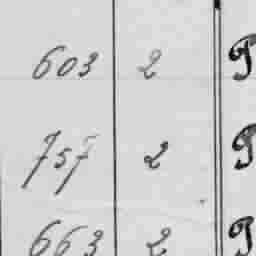 603 2 P
757 2 P
663 2 P